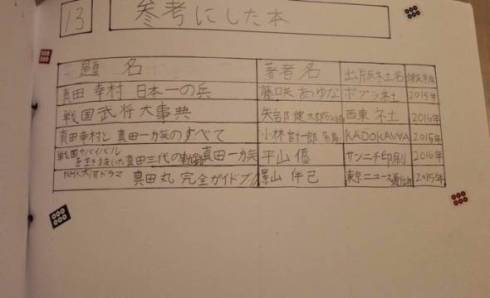 13 参考にした本
題名 著者名 出版社名
真田 幸村 日本一の兵 藤咲 あゆな ポプラ社 2015年
戦国武将大事典 西東社 2016年
真田幸村と真田一族のすべて 小林 KADOKAWA 2015年
戦国サバイバルを生き抜いた真田三代の 真田一族 平山 優 サンニチ印刷 2016年
NHK大河ドラマ 真田丸 完全ガイドブック 東京ニュース 2015年